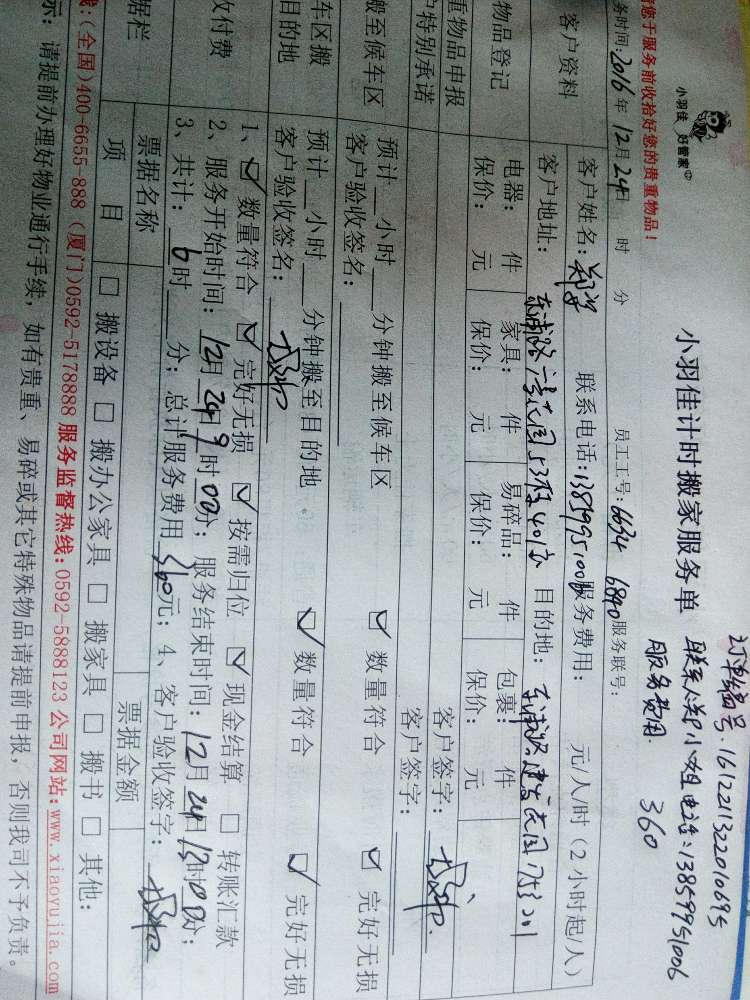 订单编号:161221322010695
联系人郑小姐 电话:13859951006
服务费用: 360
小羽佳 好管家
小羽佳计时搬家服务单
您于服务前收拾好您的贵重物品!
务时间:2016年12月24日 时 分 员工工号:6634 6840 服务联号:
客户资料
客户姓名:郑 联系电话:13859951006 服务费用: 元/人/时(2小时起/人)
客户地址: 东浦路 花园53栋401 目的地: 东浦路建 花园
物品登记
电器: 件 家具: 件 易碎品: 件 包裹: 件
保价: 元 保价: 元 保价: 元 保价: 元
重物品申报 客户签字:
户特别承诺 客户签字:
搬至候车区
预计 小时 分钟搬至候车区 ☑ 数量符合 ☑ 完好无损
客户验收签名:
车区搬
目的地
预计 小时 分钟搬至目的地 ☑ 数量符合 ☑ 完好无损
客户验收签名:
收付费
1、☑ 数量符合 ☑ 完好无损 ☑ 按需归位 ☑ 现金结算 □ 转账汇款
2、服务开始时间: 12月24日9时00分; 服务结束时间: 12月24日15时00分;
3、共计: 6时 分; 总计服务费用 360元; 4、客户验收签字:
据栏
票据名称 票据金额
项 目 □ 搬设备 □ 搬办公家具 □ 搬家具 □ 搬书 □ 其他:
线:(全国)400-6655-888 (厦门)0592-5178888 服务监督热线:0592-5888123 公司网站:www.xiaoyujia.com
示: 请提前办理好物业通行手续, 如有贵重、易碎或其它特殊物品请提前申报, 否则我司不予负责。